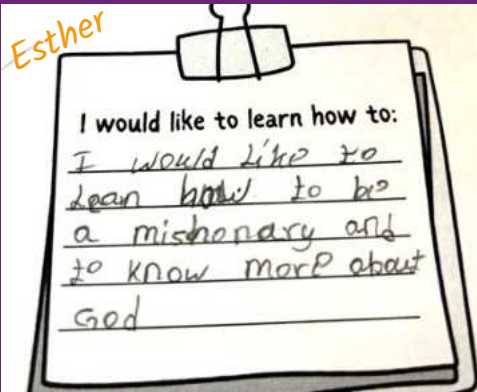 Esther
I would like to learn how to:
I would like to
lean how to be
a mishonary and
to know more about
God